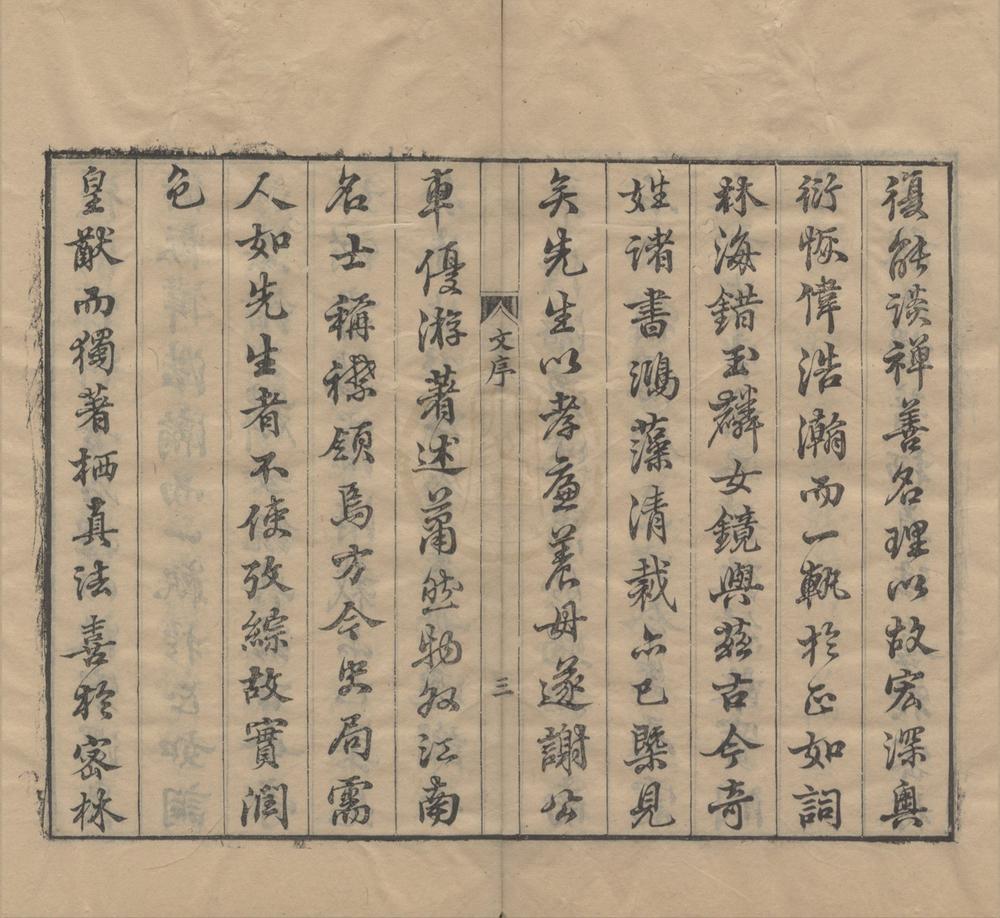 復能談禪善名理以故宏深奥
衍恢偉浩瀚而一軌於正如詞
林海錯玉麟女鏡與茲古今奇
姓諸書鴻藻清裁亦已槩見
矣先生以孝廉養母遂謝公
文序
三
車優游著述蕭然物外江南
名士稱襟領焉方今史局需
人如先生者不使攷綜故實潤
色
皇猷而獨著栖真法喜於密林